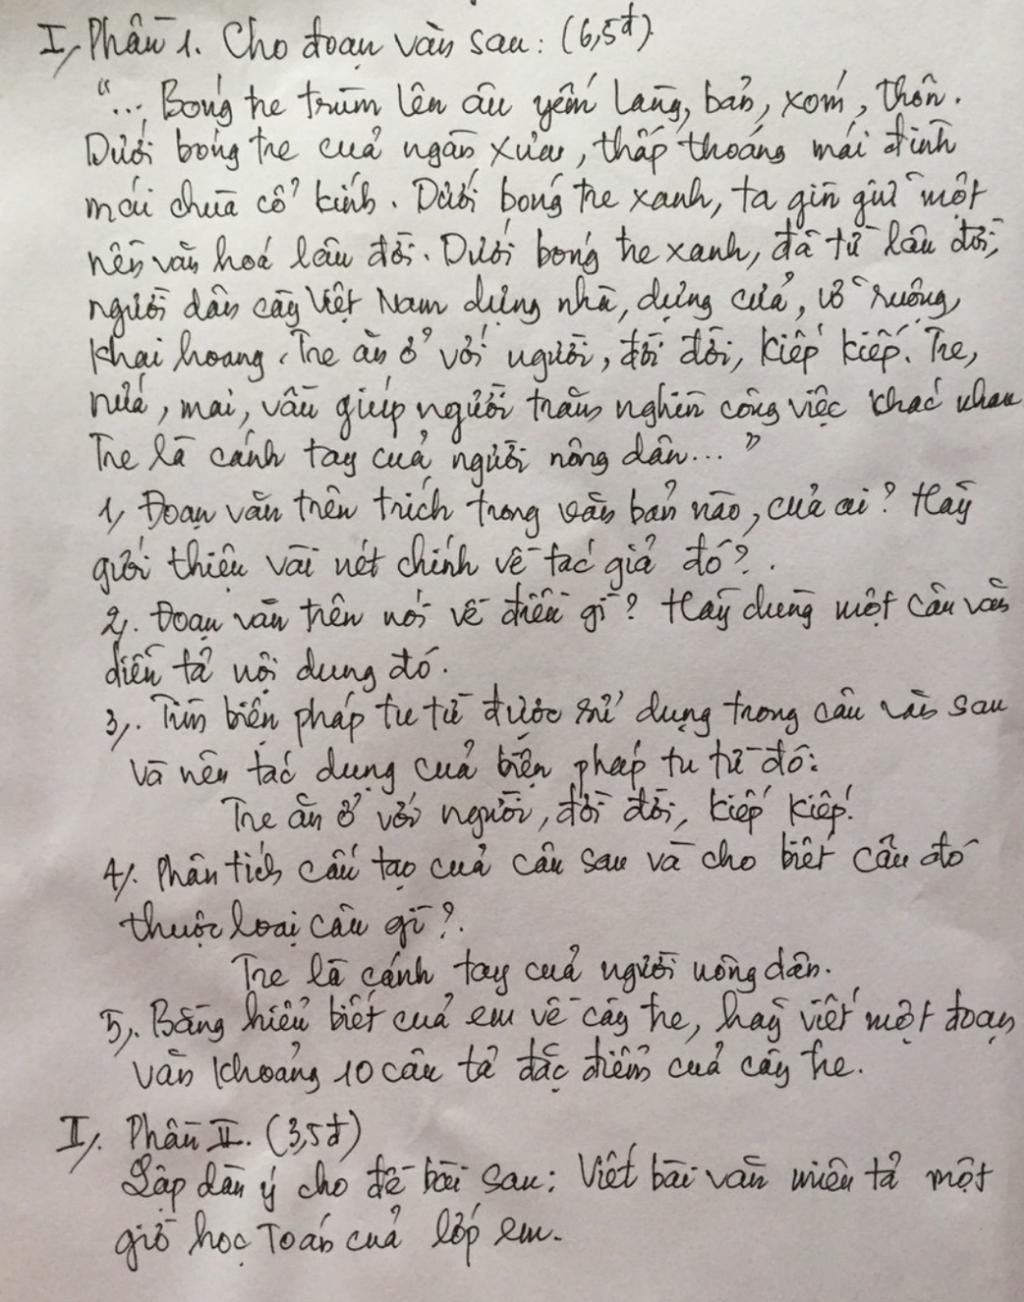 I, Phần 1. Cho đoạn văn sau: (6,5đ)
"... Bóng tre trùm lên âu yếm làng, bản, xóm, thôn.
Dưới bóng tre của ngàn xưa, thấp thoáng mái đình
mái chùa cổ kính. Dưới bóng tre xanh, ta gìn giữ một
nền văn hoá lâu đời. Dưới bóng tre xanh, đã từ lâu đời,
người dân cày Việt Nam dựng nhà, dựng cửa, vỡ ruộng,
khai hoang. Tre ăn ở với người, đời đời, kiếp kiếp. Tre,
nứa, mai, vầu giúp người trăm nghìn công việc khác nhau
Tre là cánh tay của người nông dân... "
1, Đoạn văn trên trích trong văn bản nào, của ai? Hãy
giới thiệu vài nét chính về tác giả đó?.
2,. Đoạn văn trên nói về điều gì? Hãy dùng một câu văn
diễn tả nội dung đó.
3,. Tìm biện pháp tu từ được sử dụng trong câu văn sau
và nêu tác dụng của biện pháp tu từ đó:
Tre ăn ở với người, đời đời, kiếp kiếp.
4,. Phân tích cấu tạo của câu sau và cho biết câu đó
thuộc loại câu gì?.
Tre là cánh tay của người nông dân.
5,. Bằng hiểu biết của em về cây tre, hãy viết một đoạn
văn khoảng 10 câu tả đặc điểm của cây tre.
II,. Phần II. (3,5đ)
Lập dàn ý cho đề bài sau: Viết bài văn miêu tả một
giờ học Toán của lớp em.